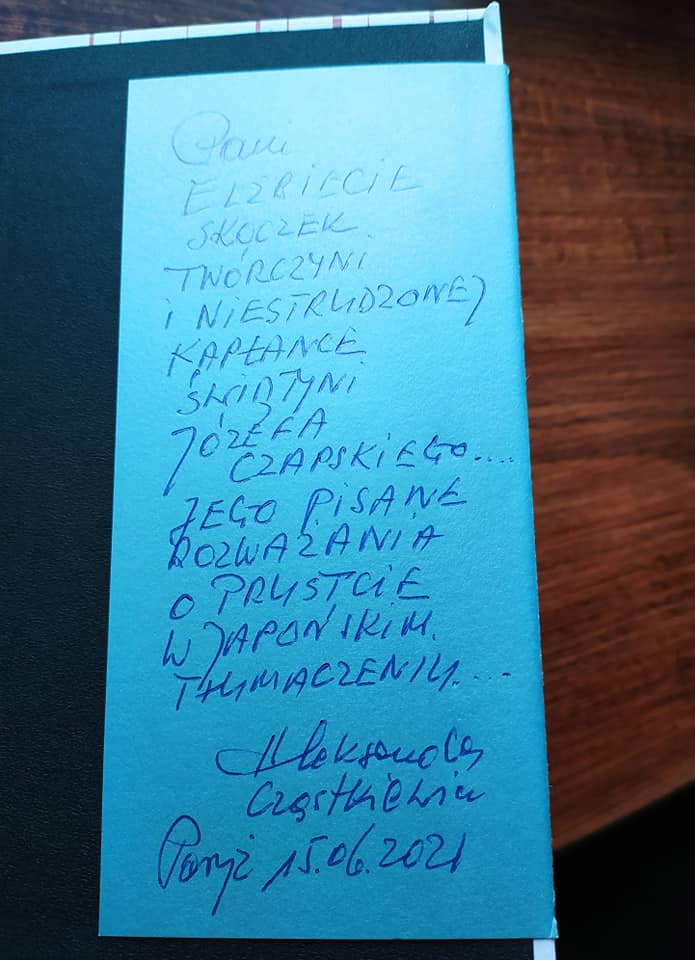 Pani
ELŻBIECIE
SKOCZEK
TWÓRCZYNI
I NIESTRUDZONEJ
KAPŁANCE
ŚWIĄTYNI
JÓZEFA
CZAPSKIEGO....
JEGO PISANE
ROZWAŻANIA
O PRUSTCIE
W JAPOŃSKIM
TŁUMACZENIU....
Aleksandra
Cząstkiewicz
Paryż 15.06.2021